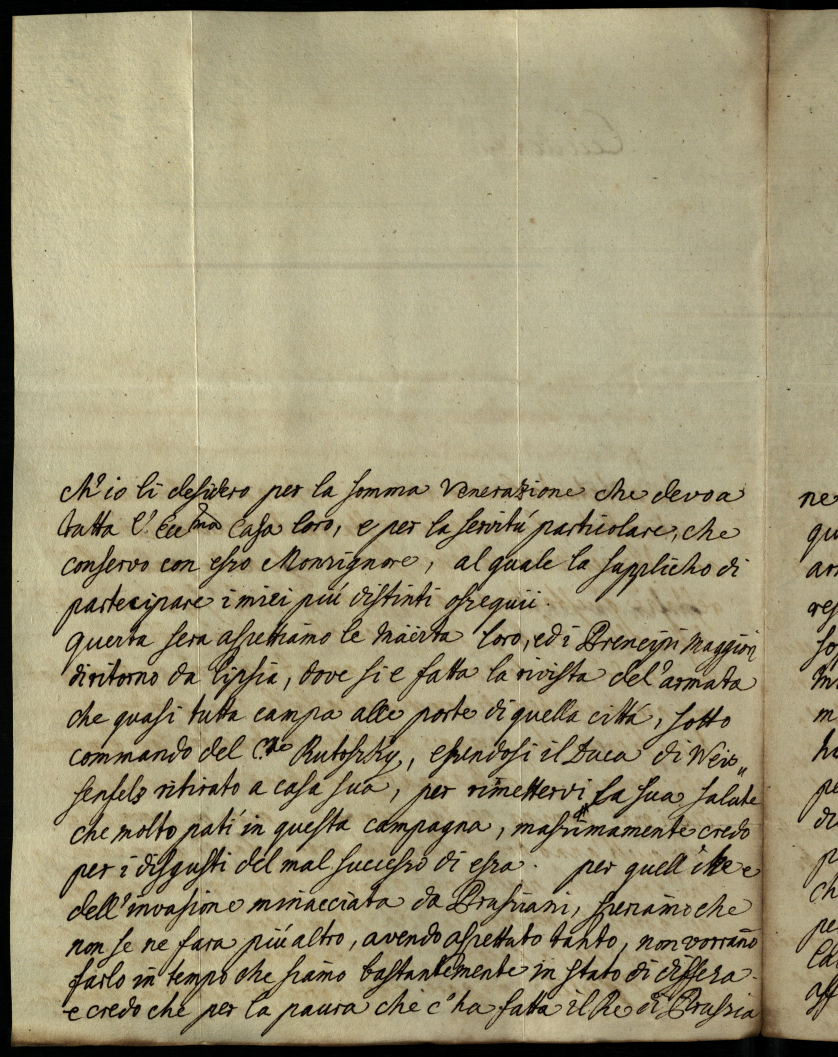 ch'io li desidero per la somma Venerazione che devo a
tutta l'Ecc.ma Casa loro, e per la servitú particolare, che
conservo con esso Monsignore, al quale la supplicho di
partecipare i miei piú distinti ossequii.
questa sera aspettiamo le Maestà loro, ed i Prencipi Maggiori
di ritorno da Lipsia, dove si e fatta la rivista del'armata
che quasi tutta campa alle porte di quella cittá, sotto
commando del C.te Rutofzky, essendosi il Duca di Weis„
senfels ritirato a casa sua, per rimettervi la sua salute
che molto patí in questa campagna, massimamente credo
per i disgusti del mal successo di essa. per quell' che e
dell'invasione minacciata da Prassiani, speriamo che
non se ne fara piú altro, avendo aspettato tanto, non vorrano
farlo in tempo che siamo bastantemente in stato di diffesa.
e credo che per la paura che c'ha fatta il Re di Prassia